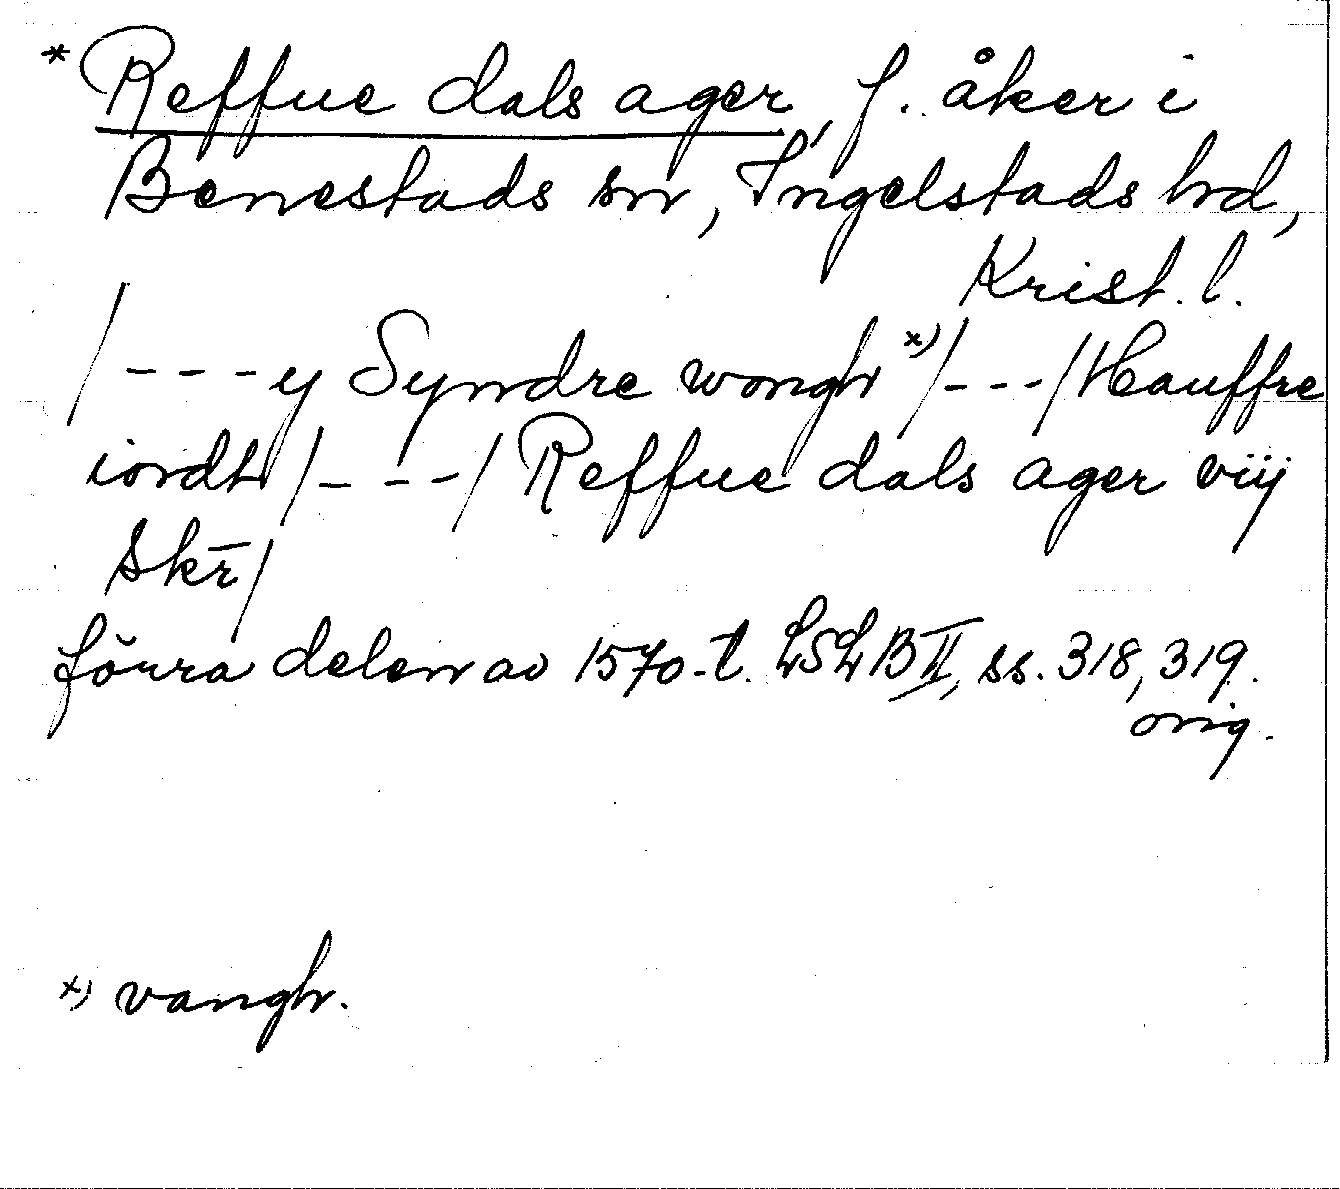 * Reffue dals ager, f. åker i
Benestads sn, Ingelstads hd,
Krist. l.
/---y Syndre wongh x)/---/Hauffre
iordh/---/Reffue dals ager viij
Skr̄/
förra delen av 1570-t. LSLB II, ss. 318, 319.
orig.
x) vangh.